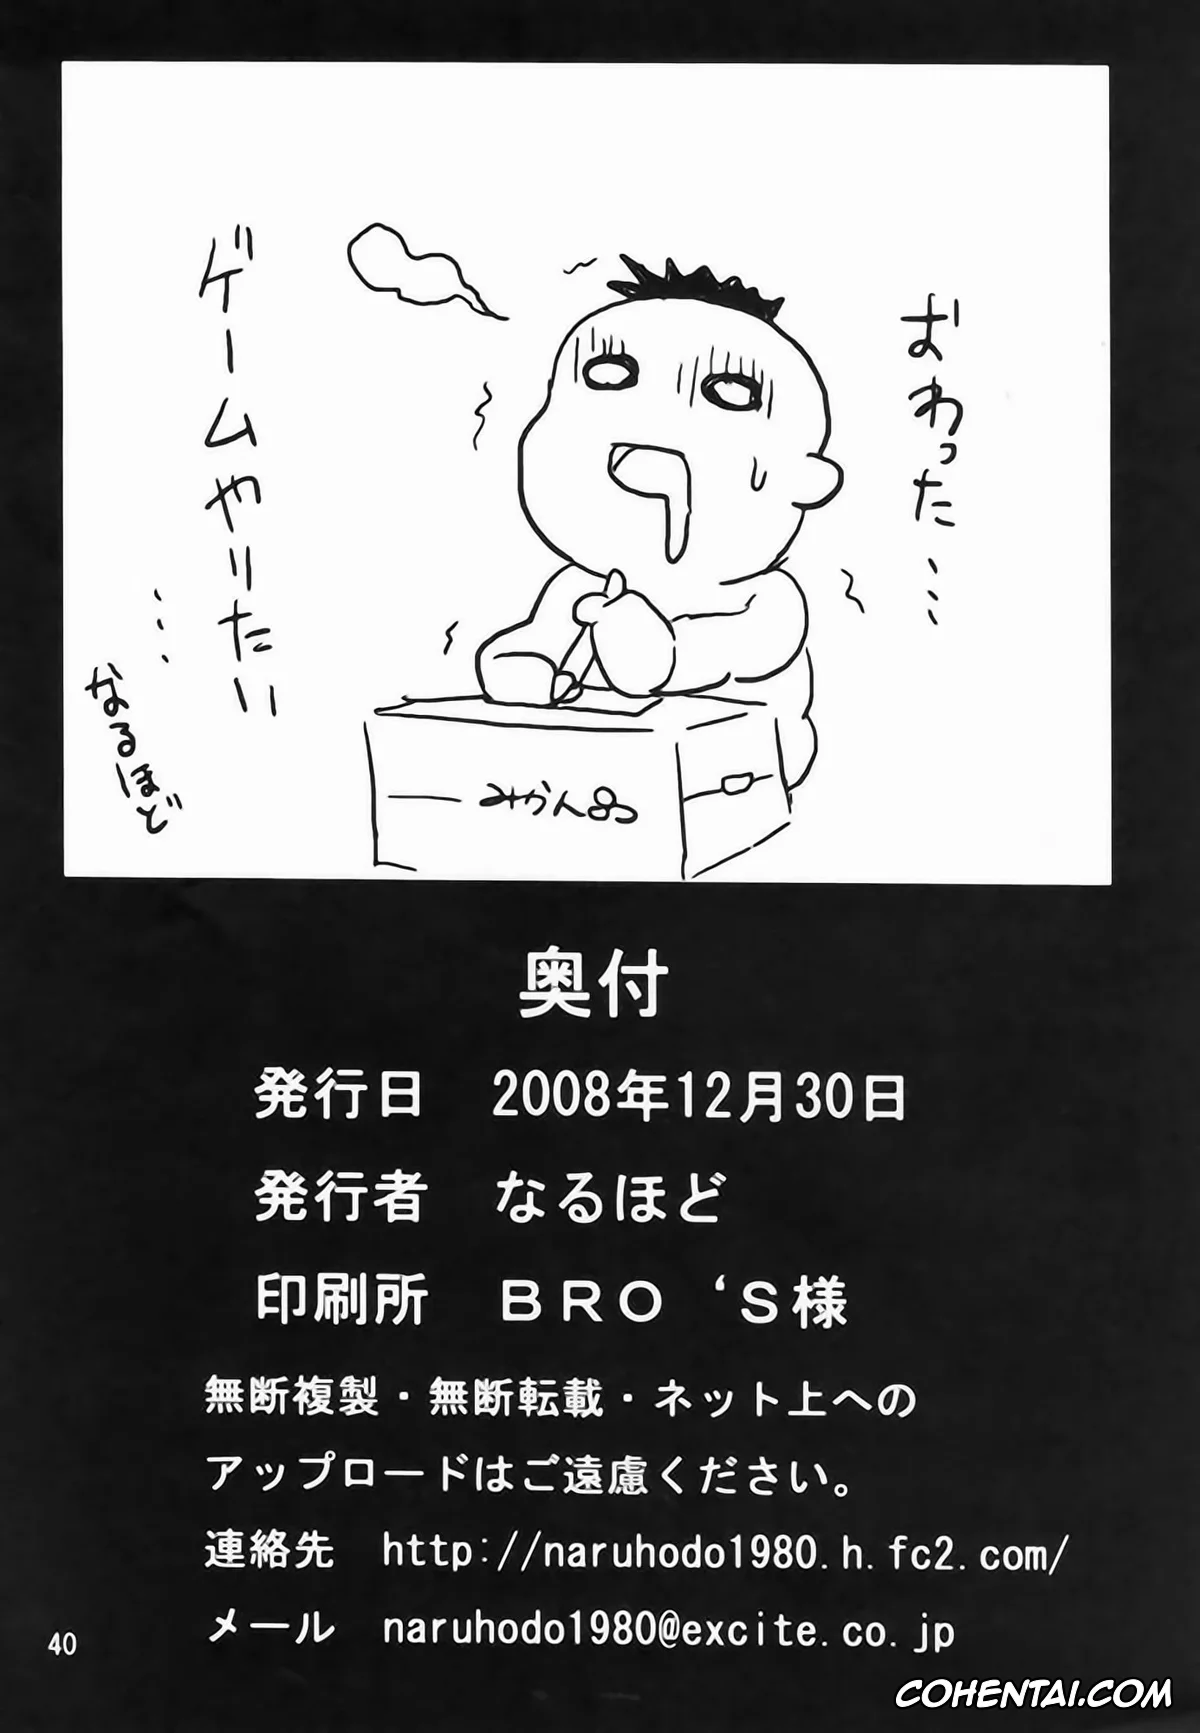 おわった…
ゲームやりたい
…
なるほど
みかん
奥付
発行日　2008年12月30日
発行者　なるほど
印刷所　ＢＲＯ‘Ｓ様
無断複製・無断転載・ネット上への
アップロードはご遠慮ください。
連絡先　http://naruhodo1980.h.fc2.com/
メール　naruhodo1980@excite.co.jp
40
COHENTAI.COM